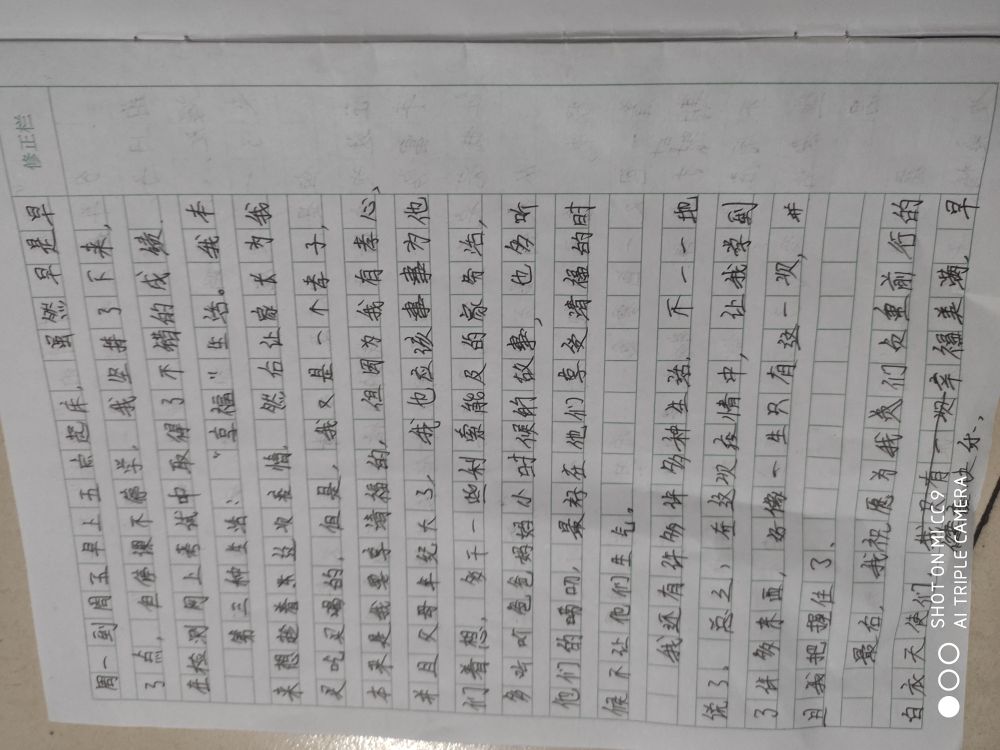 修正栏
周一到周五早上五点起床，虽然早是早
了点，但停课不停学，我坚持了下来，
在检测网上考试中取得了不错的成绩.
第三种生活："享福"生活。我本
来想趁着来这次疫情，然后让家长为我
又吃又喝的，但是，我又是一个孝子，
本来是我要享清福的，但因为我有孝心，
并且父母年纪大了，我也应该事事为他
们着想，多干一些利索能及的家务活，
多叫叫爸爸妈妈小时候的故事，也多听
他们的唠叨，最好在他们享受清福的时
候不让他们生气。
我还有许多许多种生活，不一一把
说了，总之，在这次疫情中，让我学到
了许多东西，好像一生只有这一次，并
且我把握住了、
最后，我祝愿为我类们负重前行的
白衣天使们 一切幸福美满，早
SHOT ON MI CC9
AI TRIPLE CAMERA